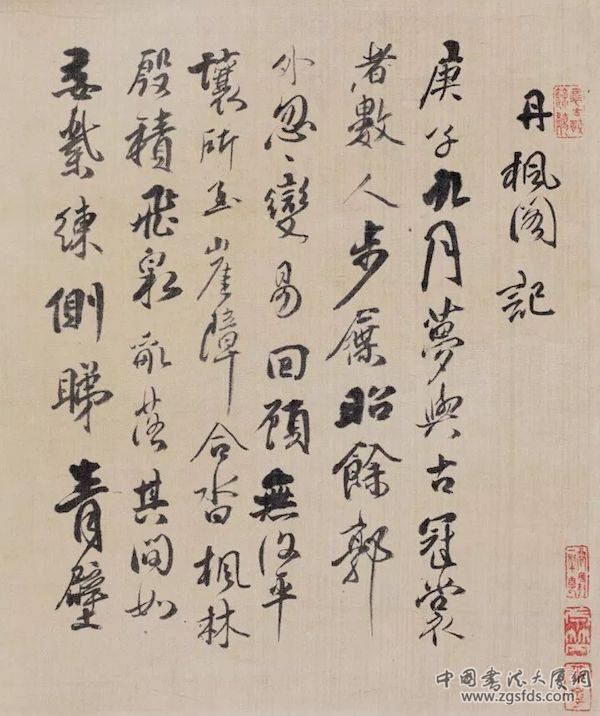 丹楓阁記
庚子九月夢與古冠裳
者數人步屧昭餘郭
外忽〻變易回顾無復平
壤所至崖障合沓楓林
殷積飛泉亂落其間如
縈練側睇青壁
中国书法大厦網
www.zgsfds.com